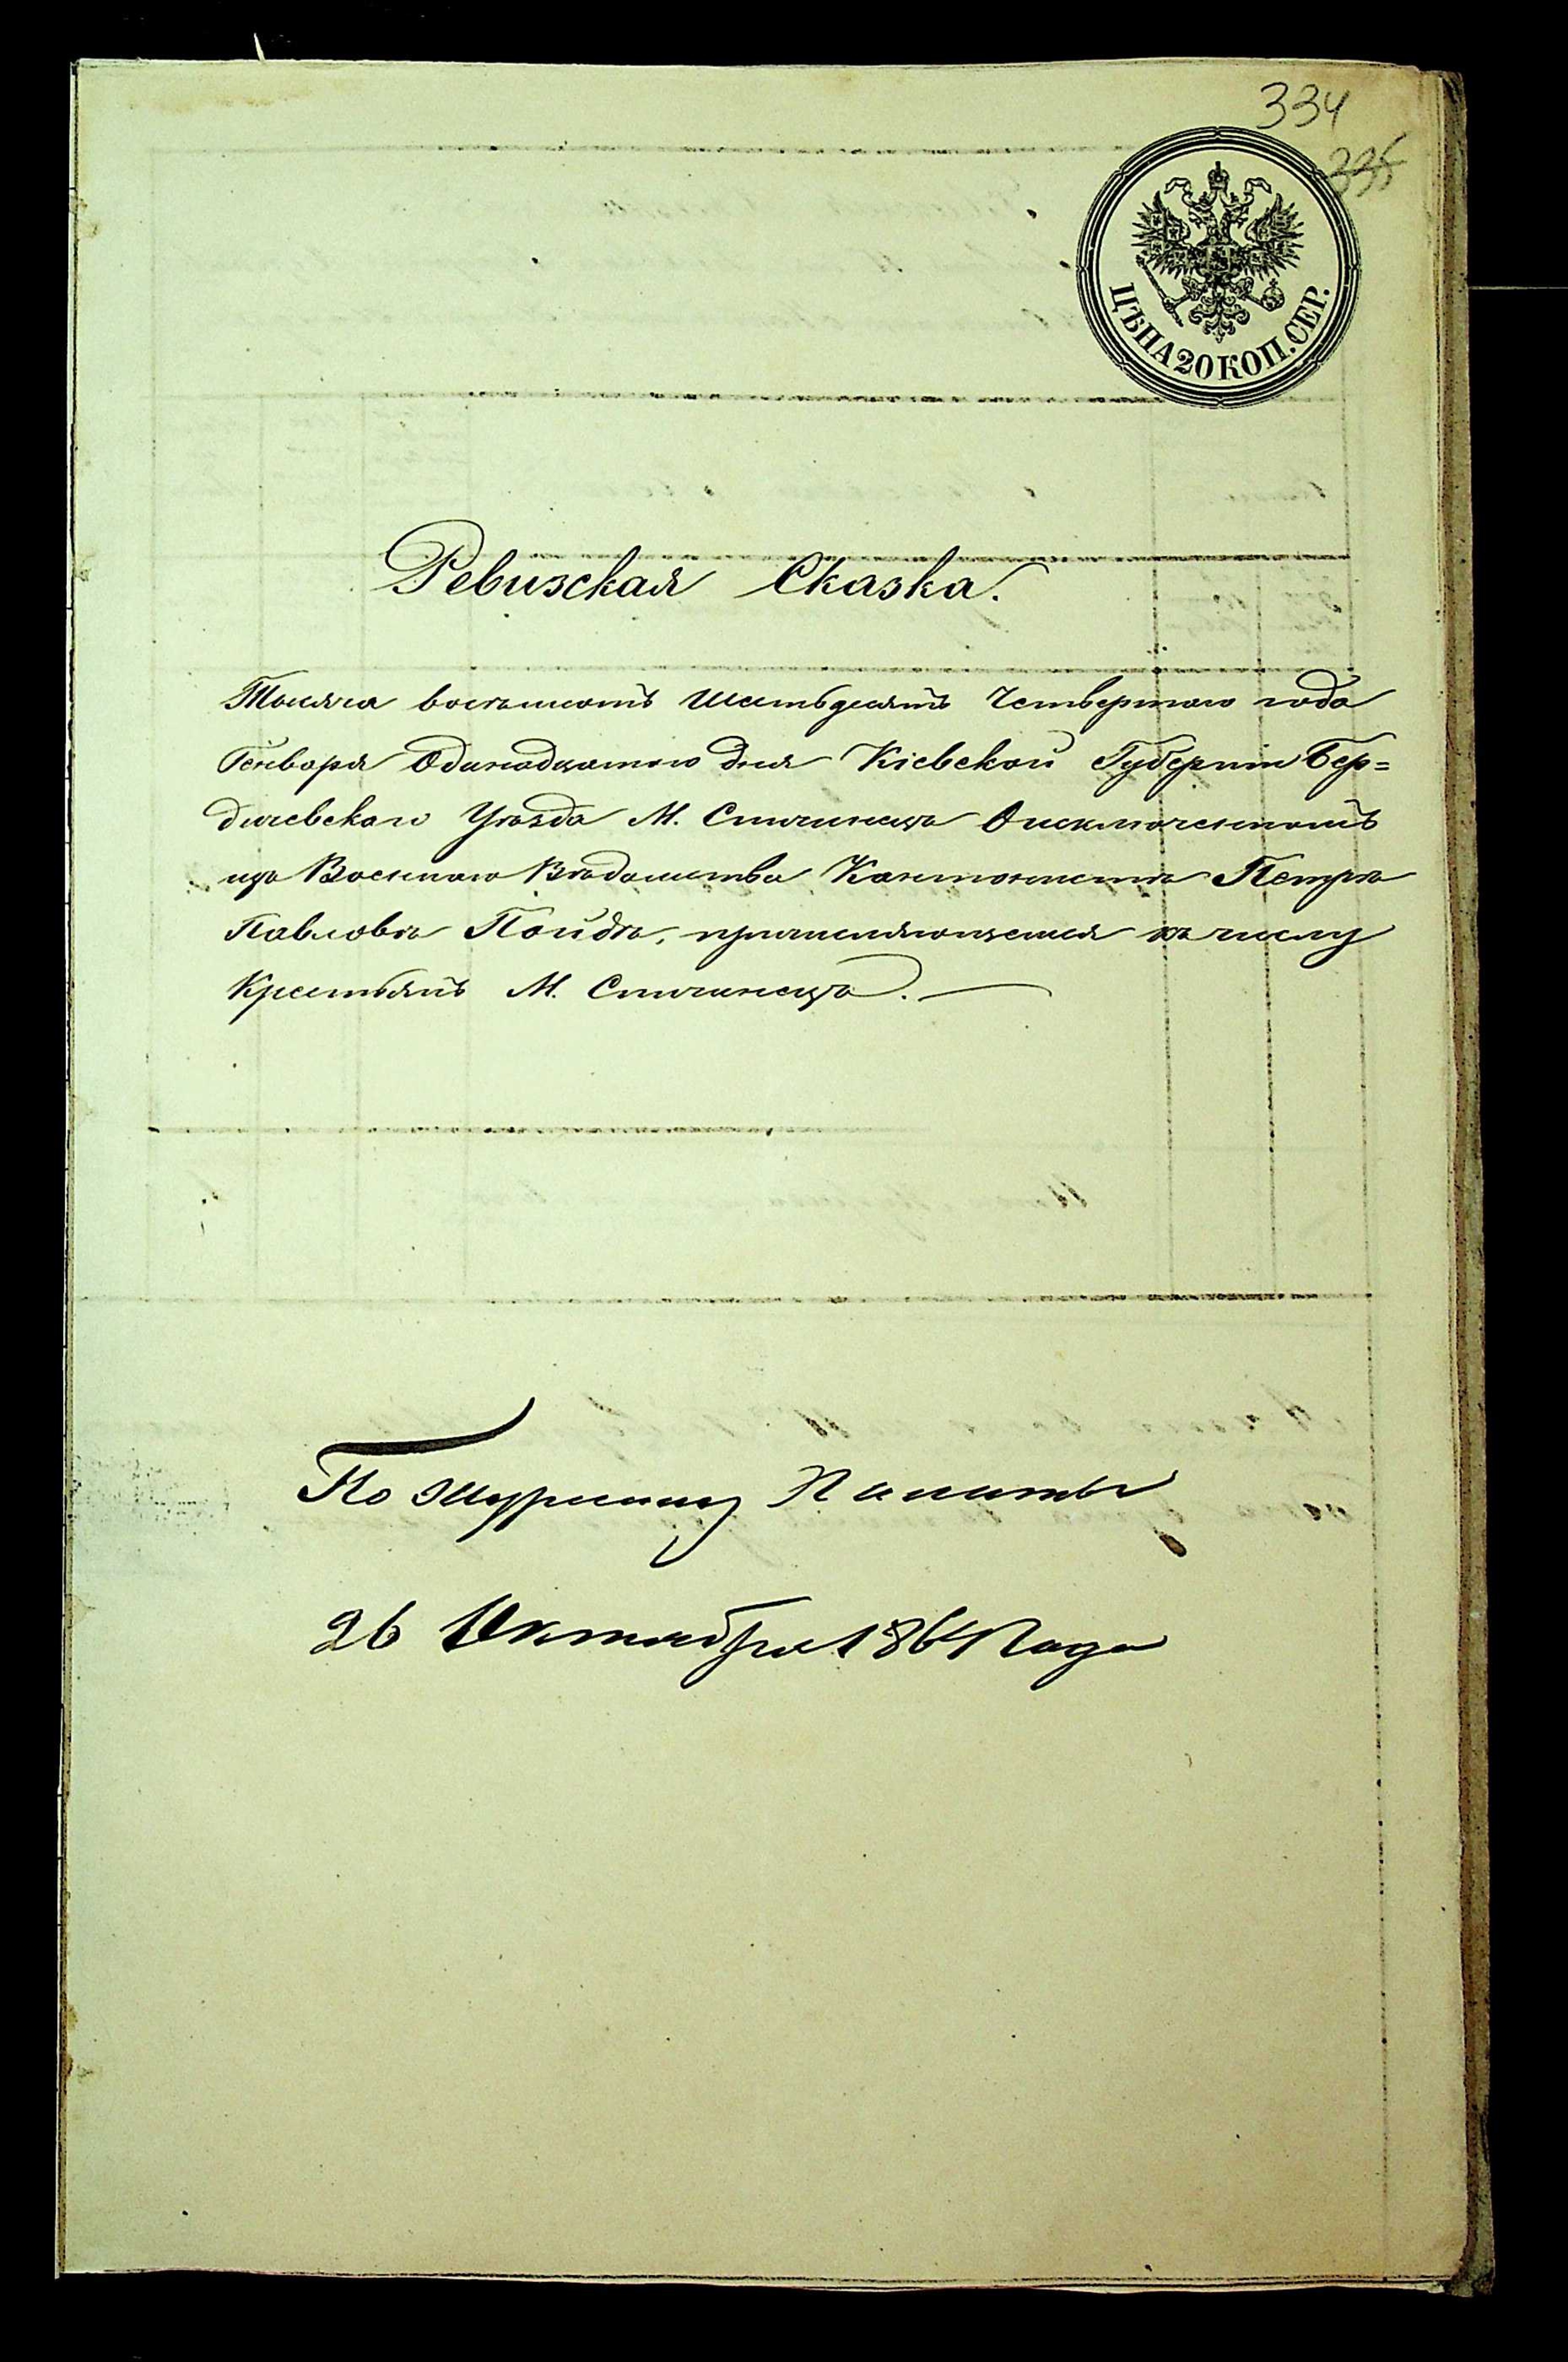 334
335
ЦѢНА 20 КОП. СЕР.
Ревизская Сказка.
Тысяча восемьсотъ шестьдесятъ Четвертого года
Генваря Одинадцатого дня Кіевской Губерніи Бер=
дичевскаго Уѣзда М. Спичинецъ О исключенномъ
изъ Военнаго Вѣдомства Кантонистѣ Петрѣ
Павловѣ Пойдѣ, причисляющемся къ числу
Крестьянъ М. Спичинецъ.
По журналу Палаты
26 Октября 1864 Года